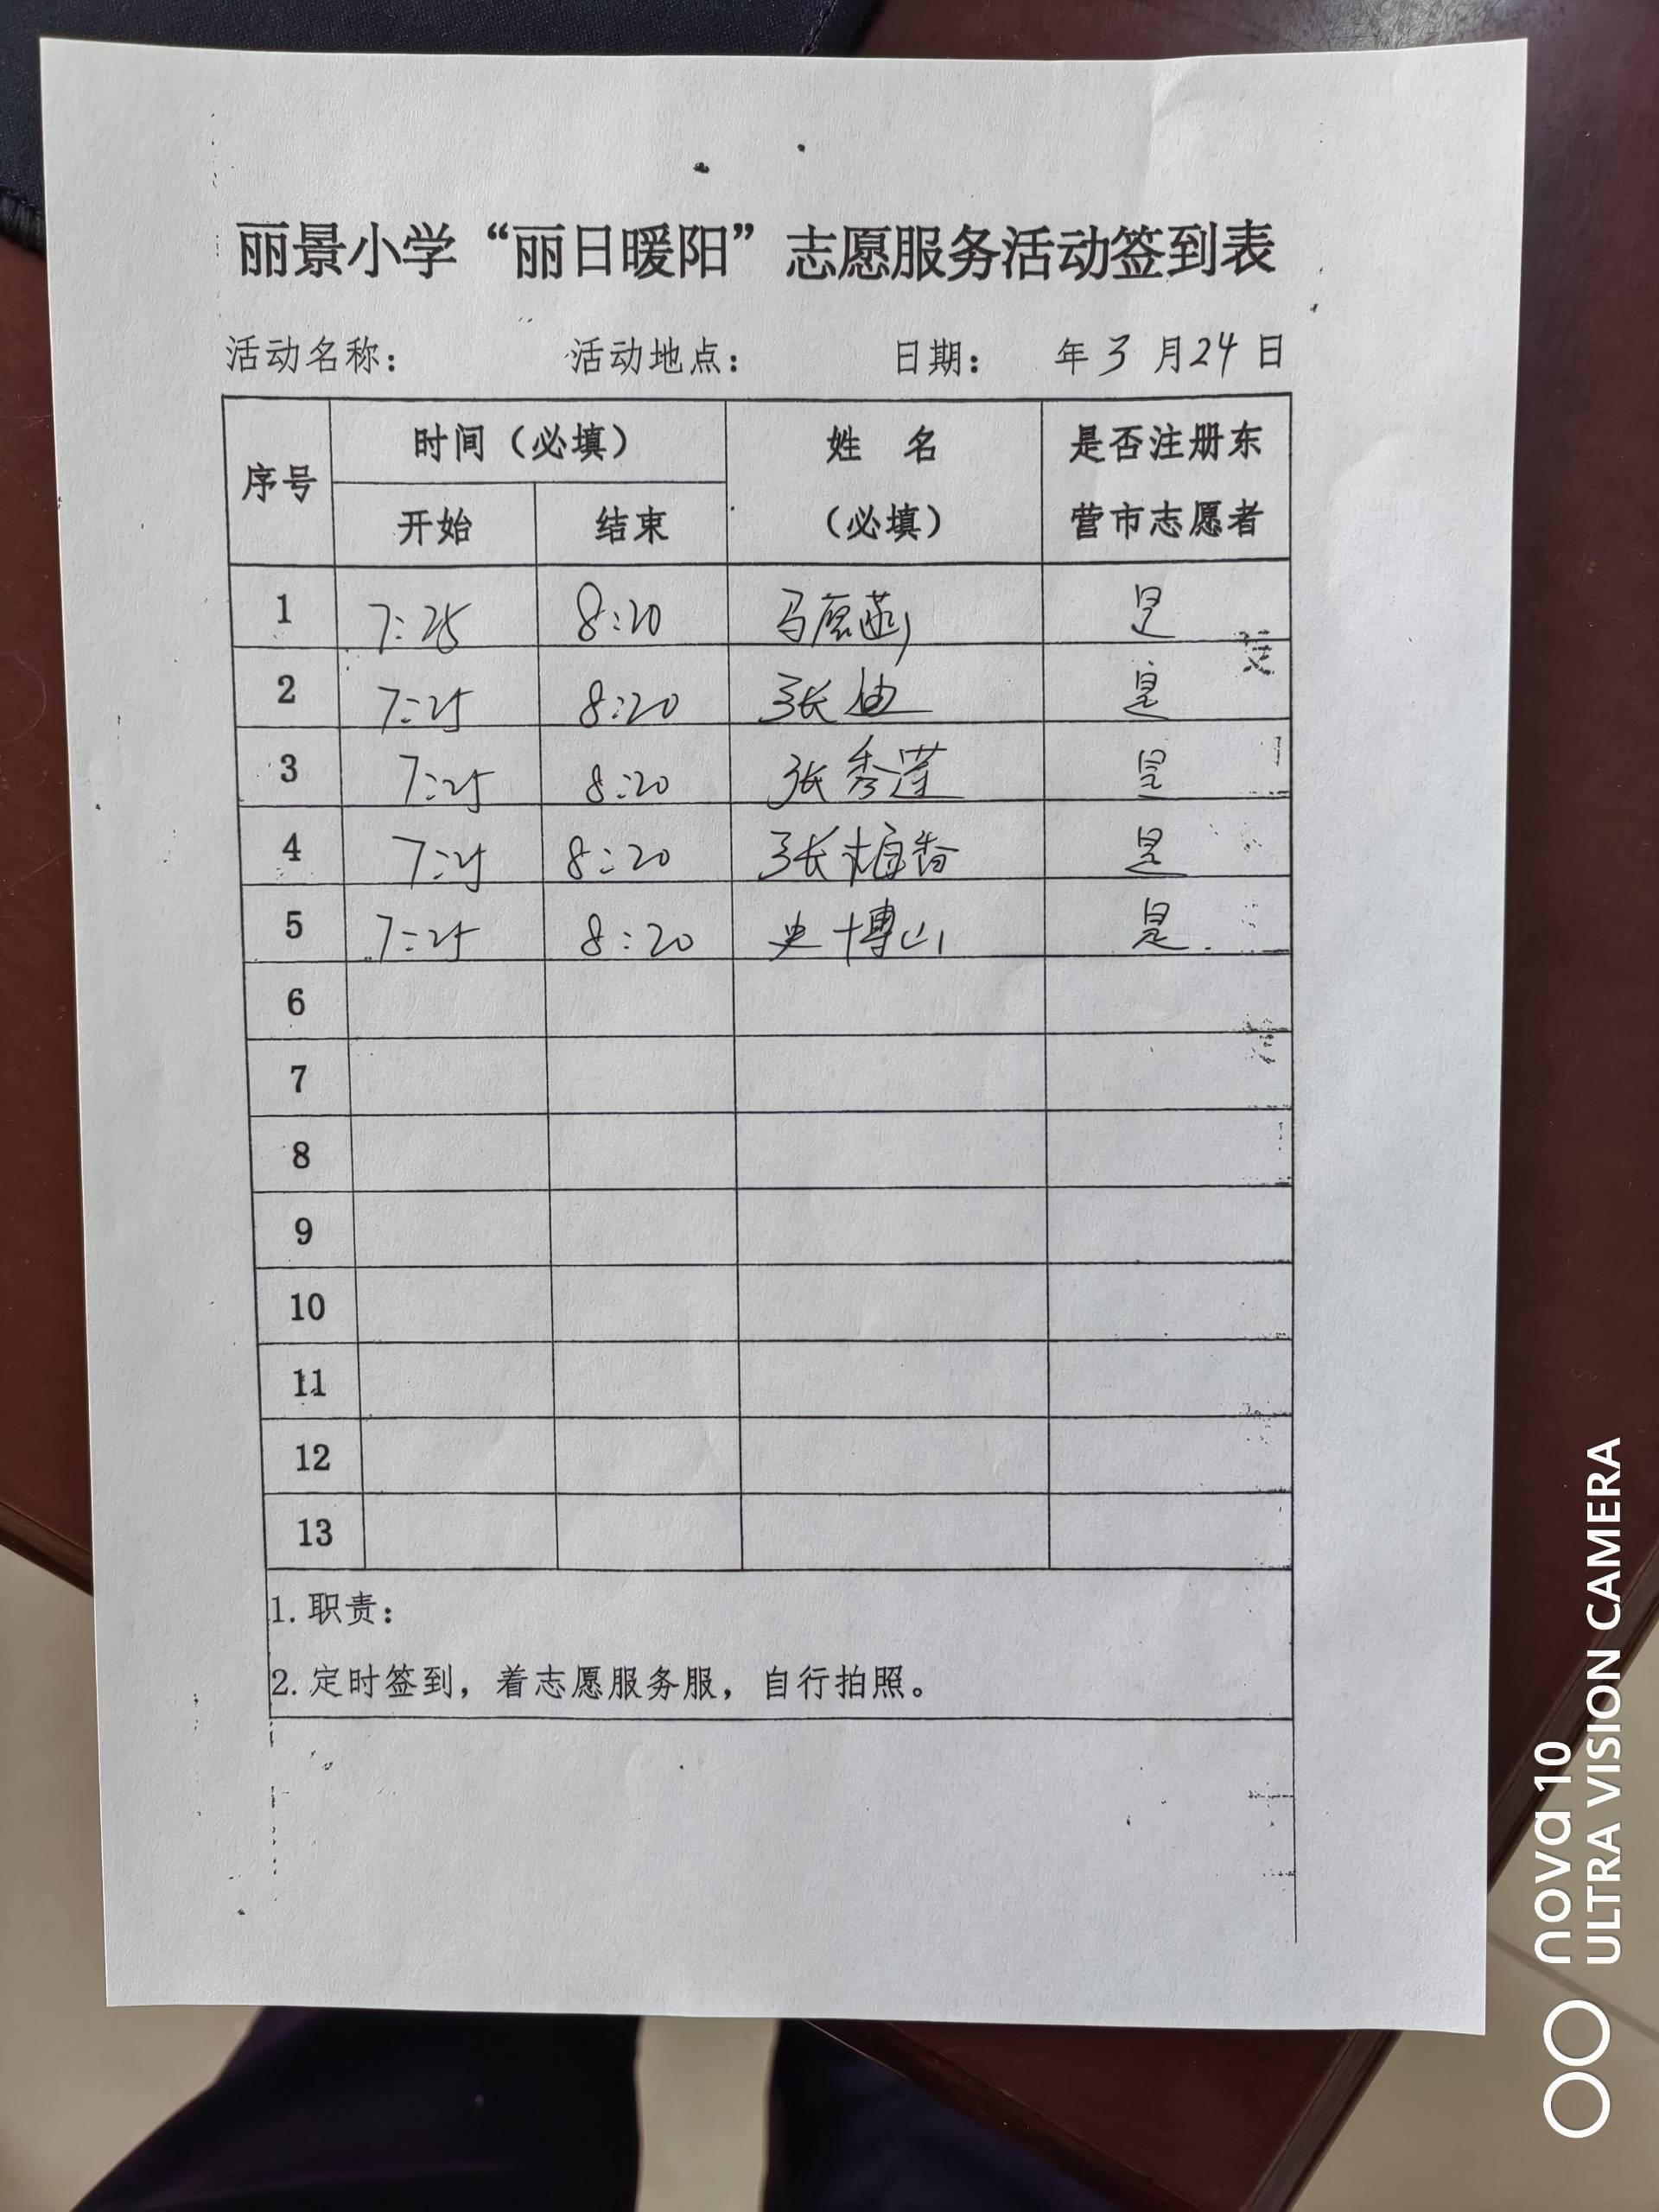 丽景小学“丽日暖阳”志愿服务活动签到表
活动名称： 活动地点： 日期： 年3月24日
序号 时间（必填） 姓 名 是否注册东
开始 结束 （必填） 营市志愿者
1 7:25 8:20 马 是
2 7:25 8:20 张迪 是
3 7:25 8:20 张秀莲 是
4 7:25 8:20 张 是
5 7:25 8:20 史博山 是.
6
7
8
9
10
11
12
13
1.职责：
2.定时签到，着志愿服务服，自行拍照。
nova 10
ULTRA VISION CAMERA